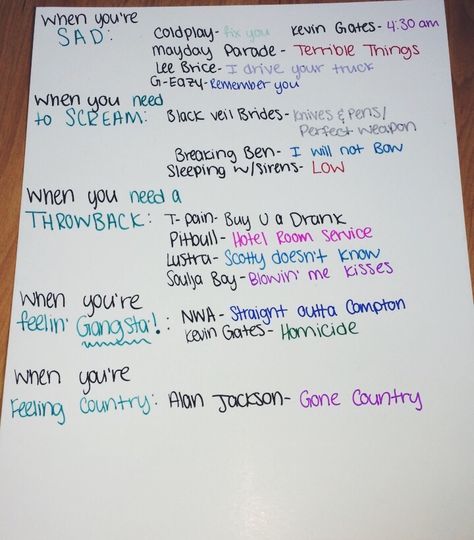 when you're
SAD: Coldplay- fix you Kevin Gates- 4:30 am
mayday Parade- Terrible Things
Lee Brice- I drive your truck
G-Eazy- Remember you
when you need
to SCREAM: Black veil Brides- Knives & Pens/
Perfect weapon
Breaking Ben- I will not Bow
Sleeping w/Sirens- LOW
when you need a
THROWBACK: T-pain- Buy U a Drank
Pitbull- Hotel Room Service
Lustra- Scotty doesn't know
Soulja Boy- Blowin' me kisses
when you're
feelin' Gangsta!: NWA- Straight outta Compton
Kevin Gates- Homicide
when you're
Feeling Country: Alan Jackson- Gone Country